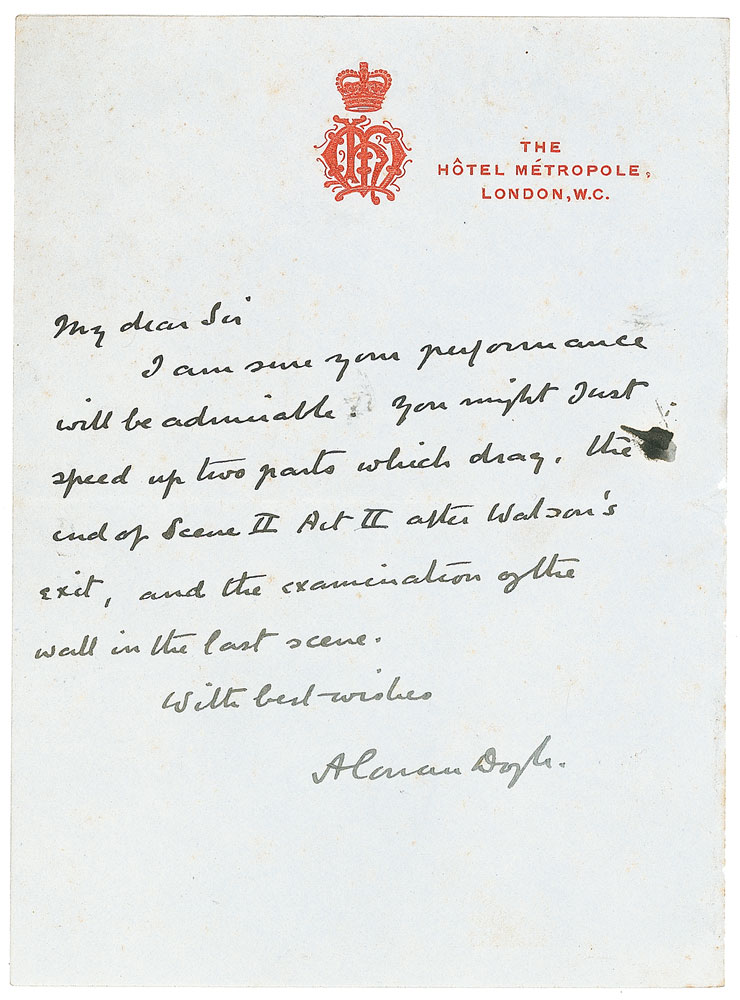 THE
HÔTEL MÉTROPOLE,
LONDON, W.C.
My dear Sir
I am sure your performance
will be admirable. You might Just
speed up two parts which drag, the
end of Scene II Act II after Watson's
exit, and the examination of the
wall in the last scene.
With best wishes
A Conan Doyle.